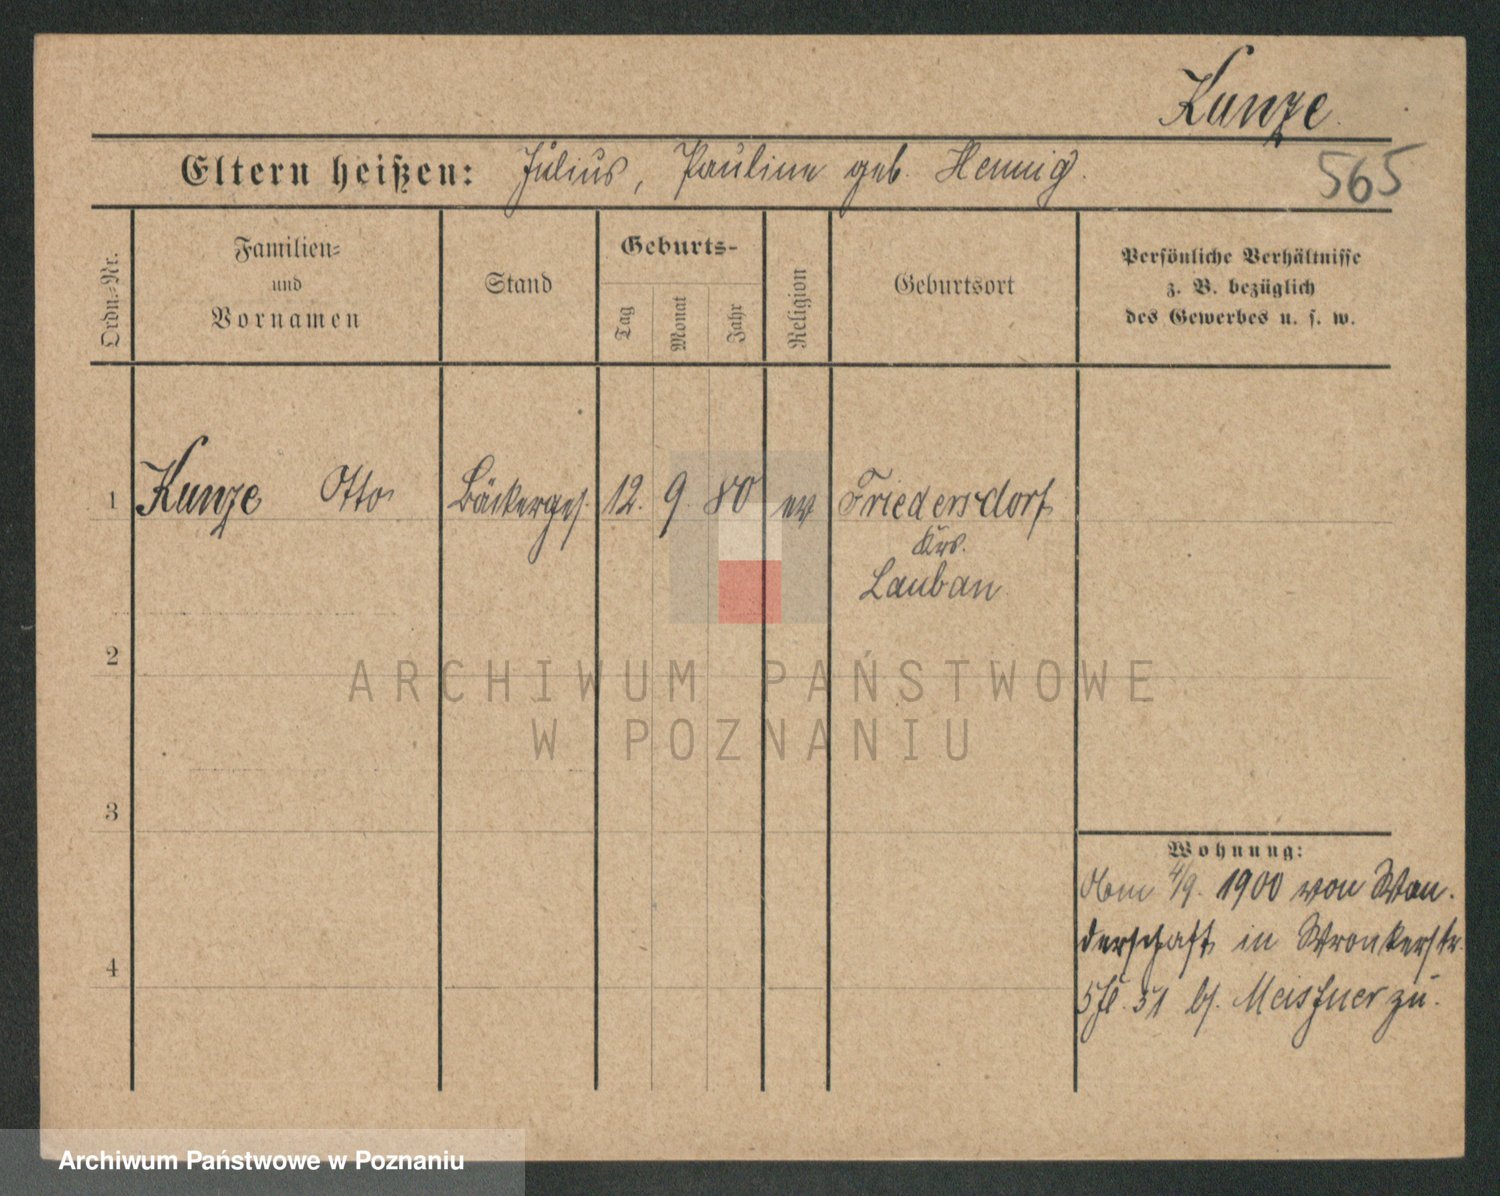 Kunze
Eltern heißen: Julius, Pauline geb. Hennig.
565
Ordn.-Nr.
Familien-
und
Vornamen
Stand
Geburts-
Tag
Monat
Jahr
Religion
Geburtsort
Persönliche Verhältnisse
z. B. bezüglich
des Gewerbes u. s. w.
1 Kunze Otto Bäckerges. 12. 9. 80 ev Friedersdorf
Krs.
Lauban
2
3
4
Wohnung:
4/9. 1900 von Wan-
derschaft in Wronkerstr.
51 bs. Meisner zu.
ARCHIWUM PAŃSTWOWE
W POZNANIU
Archiwum Państwowe w Poznaniu